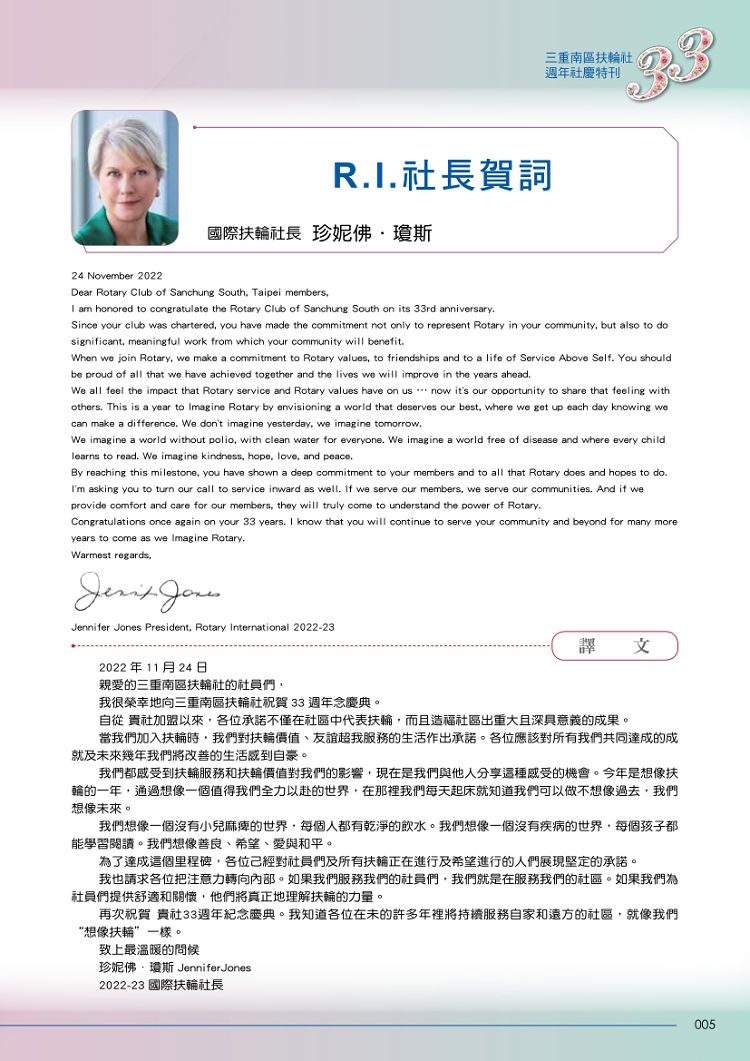 三重南區扶輪社
週年社慶特刊
33
R.I.社長賀詞
國際扶輪社長 珍妮佛·瓊斯
24 November 2022
Dear Rotary Club of Sanchung South, Taipei members,
I am honored to congratulate the Rotary Club of Sanchung South on its 33rd anniversary.
Since your club was chartered, you have made the commitment not only to represent Rotary in your community, but also to do
significant, meaningful work from which your community will benefit.
When we join Rotary, we make a commitment to Rotary values, to friendships and to a life of Service Above Self. You should
be proud of all that we have achieved together and the lives we will improve in the years ahead.
We all feel the impact that Rotary service and Rotary values have on us … now it's our opportunity to share that feeling with
others. This is a year to Imagine Rotary by envisioning a world that deserves our best, where we get up each day knowing we
can make a difference. We don't imagine yesterday, we imagine tomorrow.
We imagine a world without polio, with clean water for everyone. We imagine a world free of disease and where every child
learns to read. We imagine kindness, hope, love, and peace.
By reaching this milestone, you have shown a deep commitment to your members and to all that Rotary does and hopes to do.
I'm asking you to turn our call to service inward as well. If we serve our members, we serve our communities. And if we
provide comfort and care for our members, they will truly come to understand the power of Rotary.
Congratulations once again on your 33 years. I know that you will continue to serve your community and beyond for many more
years to come as we Imagine Rotary.
Warmest regards,
Jennifer Jones President, Rotary International 2022-23
譯 文
2022 年 11 月 24 日
親愛的三重南區扶輪社的社員們，
我很榮幸地向三重南區扶輪社祝賀 33 週年念慶典。
自從 貴社加盟以來，各位承諾不僅在社區中代表扶輪，而且造福社區出重大且深具意義的成果。
當我們加入扶輪時，我們對扶輪價值、友誼超我服務的生活作出承諾。各位應該對所有我們共同達成的成
就及未來幾年我們將改善的生活感到自豪。
我們都感受到扶輪服務和扶輪價值對我們的影響，現在是我們與他人分享這種感受的機會。今年是想像扶
輪的一年，通過想像一個值得我們全力以赴的世界，在那裡我們每天起床就知道我們可以做不想像過去，我們
想像未來。
我們想像一個沒有小兒麻痺的世界，每個人都有乾淨的飲水。我們想像一個沒有疾病的世界，每個孩子都
能學習閱讀。我們想像善良、希望、愛與和平。
為了達成這個里程碑，各位己經對社員們及所有扶輪正在進行及希望進行的人們展現堅定的承諾。
我也請求各位把注意力轉向內部。如果我們服務我們的社員們，我們就是在服務我們的社區。如果我們為
社員們提供舒適和關懷，他們將真正地理解扶輪的力量。
再次祝賀 貴社33週年紀念慶典。我知道各位在未的許多年裡將持續服務自家和遠方的社區，就像我們
“想像扶輪”一樣。
致上最溫暖的問候
珍妮佛·瓊斯 JenniferJones
2022-23 國際扶輪社長
005